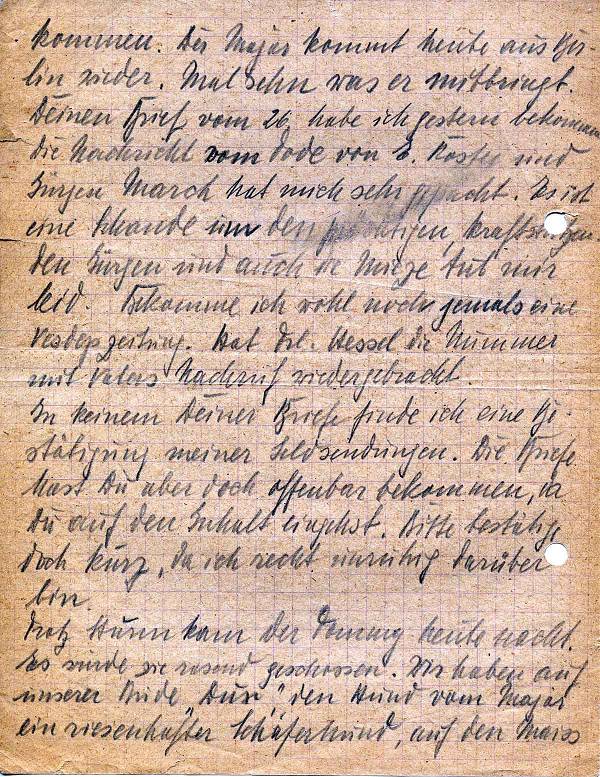 kommen. Der Major kommt heute aus Ber-
lin wieder. Mal sehn was er mitbringt.
Deinen Brief vom 26. habe ich gestern bekommen
Die Nachricht vom Tode von E. Köster und
Jürgen March hat mich sehr gepackt. Es ist
eine Schande um den prächtigen, kraftstrotzen-
den Jürgen und auch die Mieze tut mir
leid. Bekomme ich wohl noch jemals eine
Hat Frl. Hessel die Nummer
mit Vaters Nachruf wiedergebracht.
In keinem Deiner Briefe finde ich eine Be-
stätigung meiner Geldsendungen. Die Briefe
hast Du aber doch offenbar bekommen, da
Du auf den Inhalt eingehst. Bitte bestätige
doch kurz, da ich recht unruhig darüber
bin.
Trotz Sturm kam der Tommy heute nacht.
Es wurde wie rasend geschossen. Wir haben auf
unserer Bude den Hund vom Major
ein riesenhafter Schäferhund, auf den